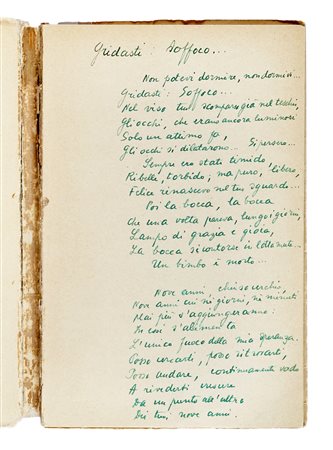 Gridasti: Soffoco...
Non potevi dormire, non dormivi...
Gridasti: Soffoco...
Nel viso tuo scomparso già nel teschio,
Gli occhi, che erano ancora luminosi
Solo un attimo fa,
Gli occhi si dilatarono... Si persero...
Sempre ero stato timido
Ribelle, torbido; ma puro, libero,
Felice rinascevo nel tuo sguardo...
Poi la bocca, la bocca
che una volta pareva, lungo i giorni,
Lampo di grazia e gioia,
La bocca si contorse in lotta muta...
Un bimbo è morto...
Nove anni, chiuso cerchio,
Nove anni cui nè giorni, nè minuti
Mai più s'aggiungeranno:
In essi s'alimenta
L'unico fuoco della mia speranza.
Posso cercarti, posso ritrovarti,
Posso andare, continuamente vado
A rivederti crescere
Da un punto all'altro
Dei tuoi nove anni.